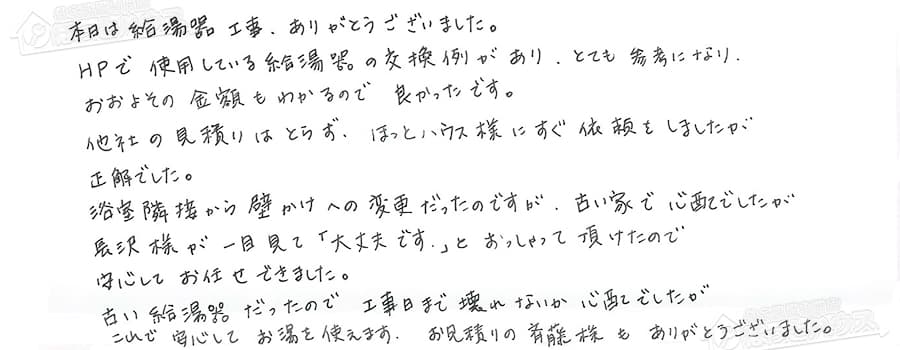 本日は給湯器工事、ありがとうございました。
HPで使用している給湯器の交換例があり、とても参考になり、
おおよその金額もわかるので良かったです。
他社の見積りはとらず、ほっとハウス様にすぐ依頼をしましたが
正解でした。
浴室隣接から壁かけへの変更だったのですが、古い家で心配でしたが
長沢様が一目見て「大丈夫です。」とおっしゃって頂けたので
安心してお任せできました。
古い給湯器だったので工事日まで壊れないか心配でしたが
これで安心してお湯を使えます。お見積りの斉藤様もありがとうございました。